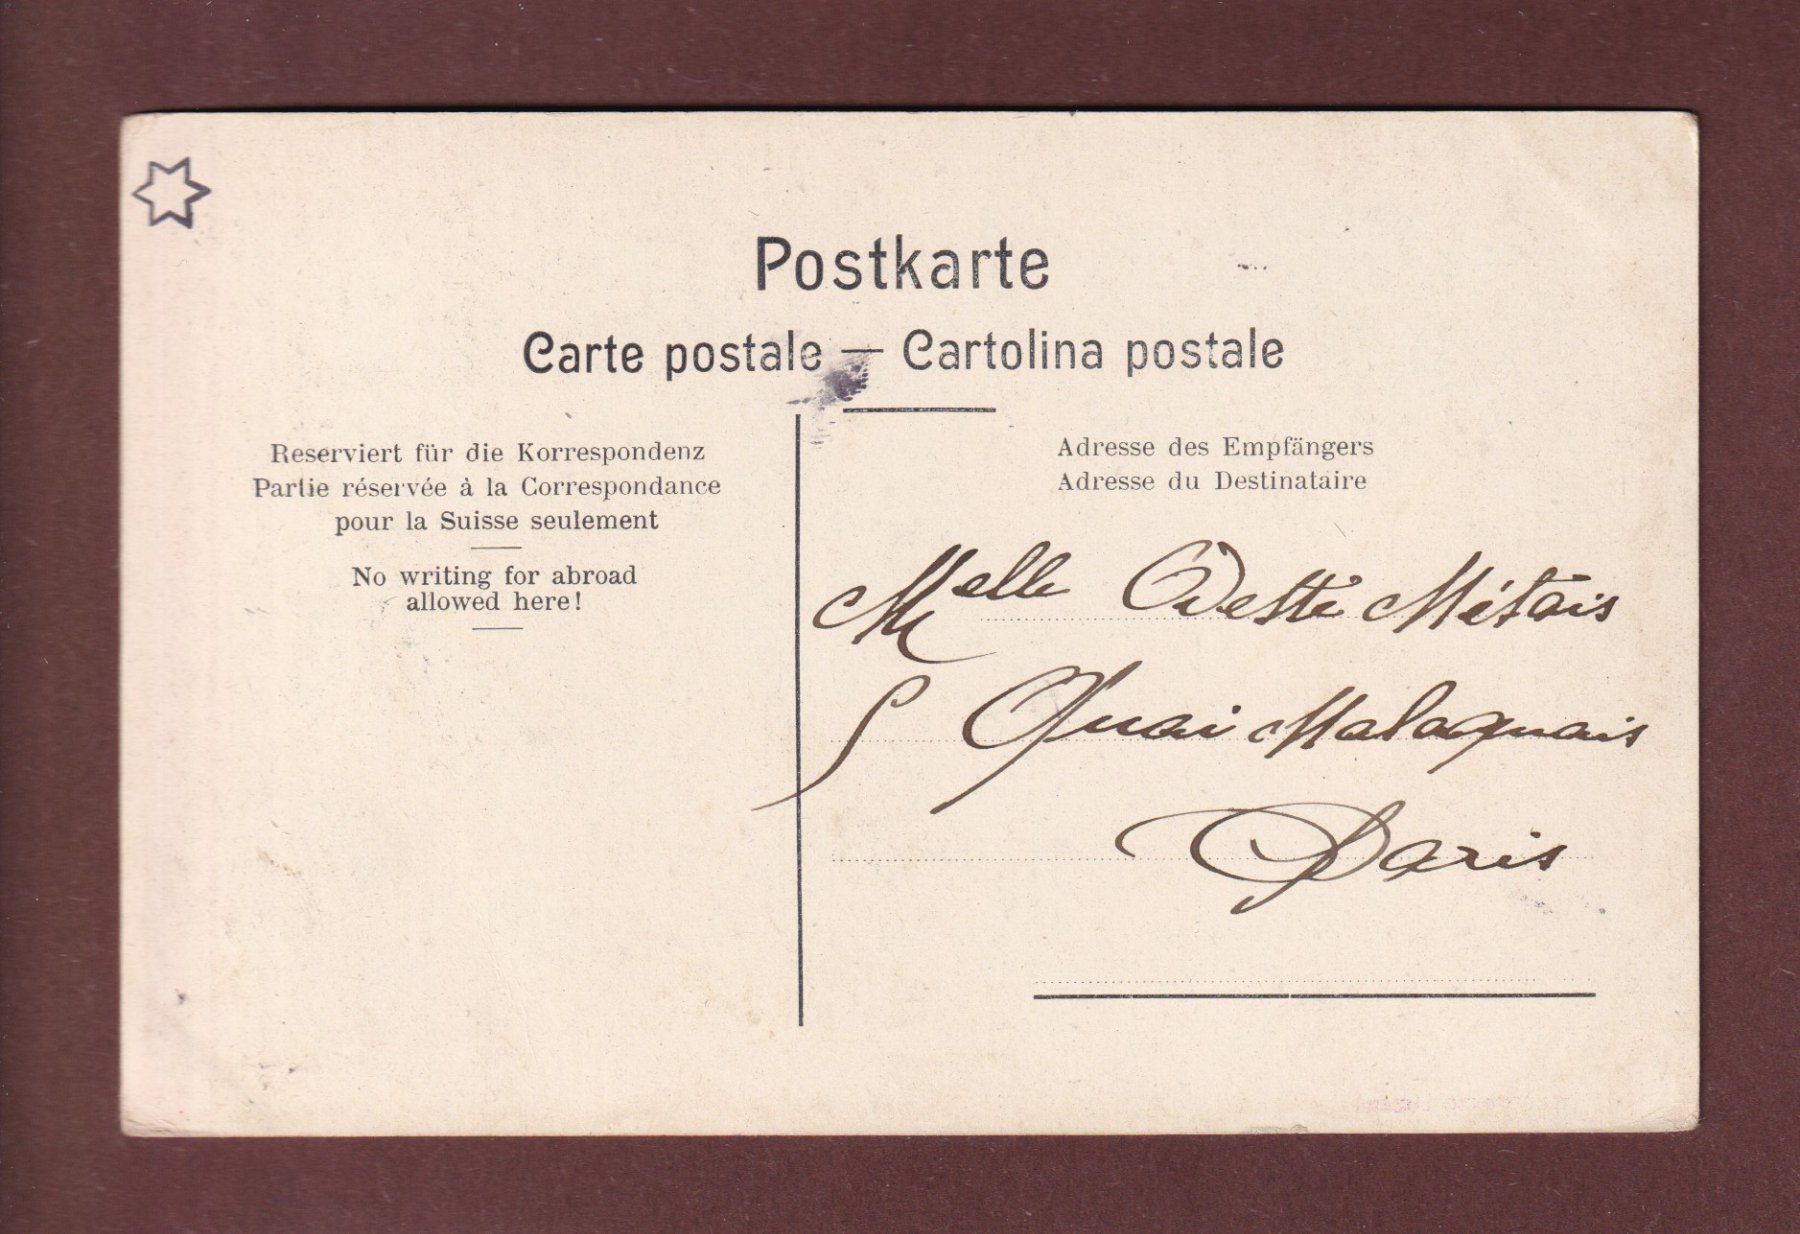 Postkarte
Carte postale — Cartolina postale
Reserviert für die Korrespondenz
Partie réservée à la Correspondance
pour la Suisse seulement
No writing for abroad
allowed here!
Adresse des Empfängers
Adresse du Destinataire
Melle Odette Métais
5 Quai Malaquais
Paris